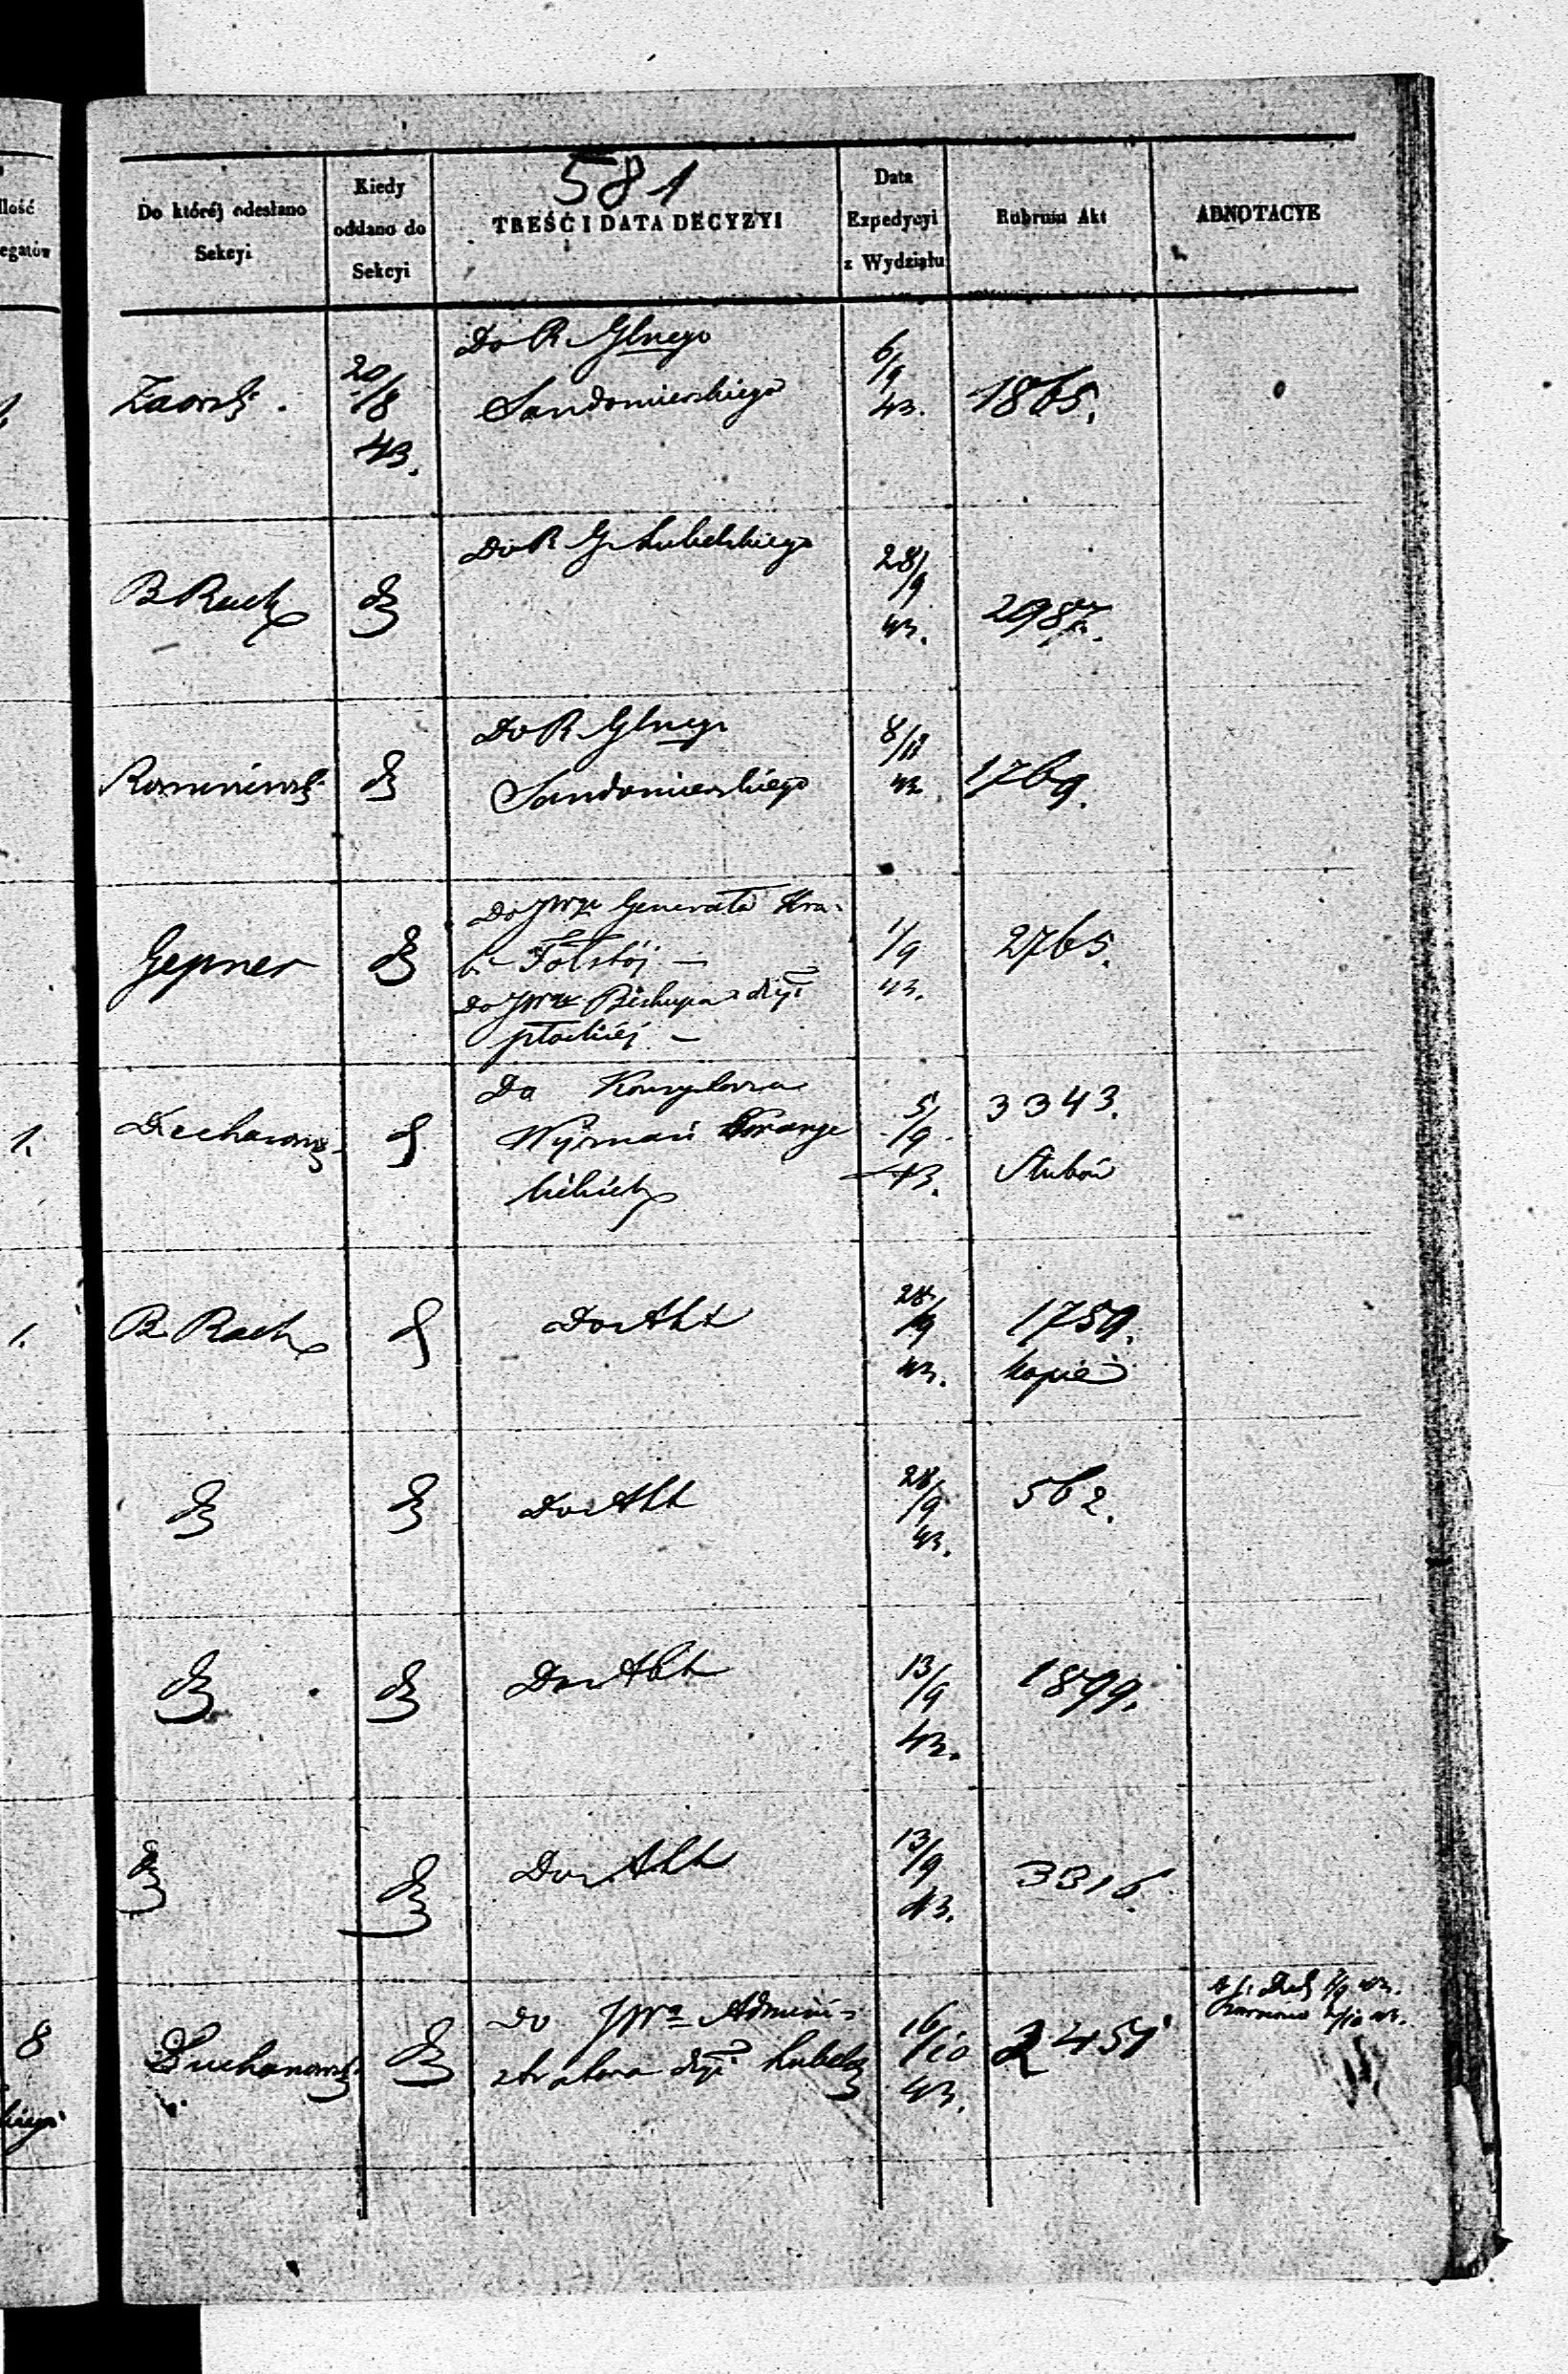 581
Do któréj odesłano
Sekcyi
Kiedy
oddano do
Sekcyi
TREŚĆ I DATA DECYZYI
Data
Expedycyi
z Wydziału
Rubrum Akt
ADNOTACYE
Ilość
Do R. Glnego
Sandomierskiego
20/8
43.
6/9
43.
1865.
B Ruch
Do R G Lubelskiego
28/9
43.
2987.
Do R Glnego
Sandomierskiego
8/11
43
1769.
Gepner
Do JWgo Generała Hra-
bi Tołstój —
Do JWgo Biskupa dyi
płockiéj —
1/9
43.
2765.
1.
Do Konsystorza
Wyznań Ewange
lickich
5/9
43.
3343.
Slubów
1.
B Ruch
Do Akt
28/9
43.
1759.
kopie
Do Akt
28/9
43.
562.
Do Akt
13/9
43.
1899.
Do Akt
13/9
43.
3316
8
Duchanowski
do JWo Adminis-
tratora dyi Lubels
16/10
43.
2451